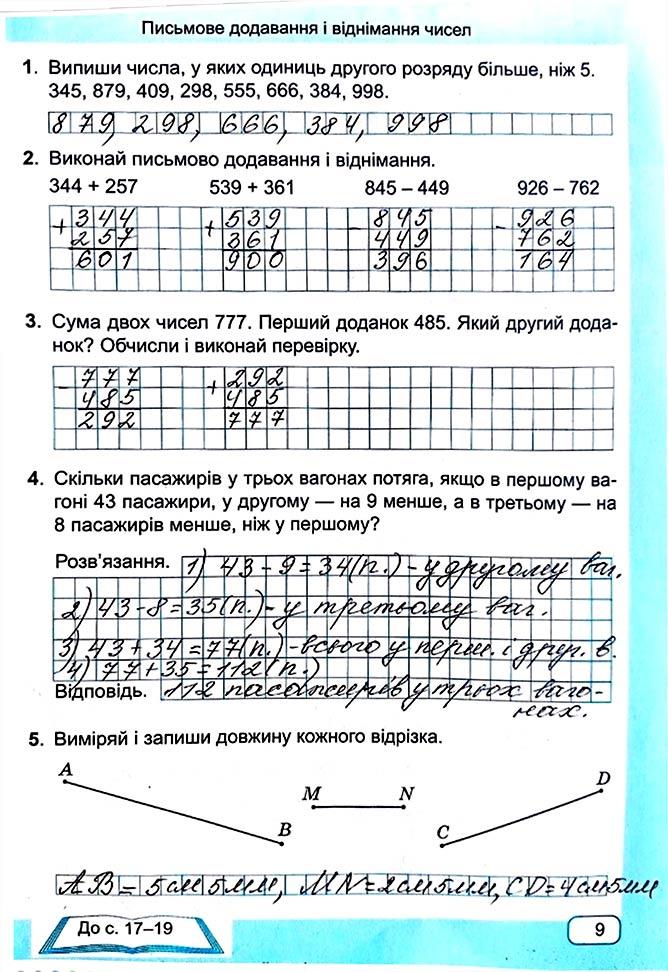 Письмове додавання і віднімання чисел
1. Випиши числа, у яких одиниць другого розряду більше, ніж 5.
345, 879, 409, 298, 555, 666, 384, 998.
879, 298, 666, 384, 998
2. Виконай письмово додавання і віднімання.
344 + 257 539 + 361 845 – 449 926 – 762
+ 344 + 539 – 845 – 926
257 361 449 762
601 900 396 164
3. Сума двох чисел 777. Перший доданок 485. Який другий дода-
нок? Обчисли і виконай перевірку.
– 777 + 292
485 485
292 777
4. Скільки пасажирів у трьох вагонах потяга, якщо в першому ва-
гоні 43 пасажири, у другому — на 9 менше, а в третьому — на
8 пасажирів менше, ніж у першому?
Розв'язання. 1) 43 - 9 = 34 (п.) - у другому ваг.
2) 43 - 8 = 35 (п.) - у третьому ваг.
3) 43 + 34 = 77 (п.) - всього у перш. і друг. в.
4) 77 + 35 = 112 (п.)
Відповідь. 112 пасажирів у трьох ваго-
нах.
5. Виміряй і запиши довжину кожного відрізка.
A D
M N
B C
AB = 5 см 5 мм, MN = 2 см 5 мм, CD = 4 см 5 мм
До с. 17–19 9